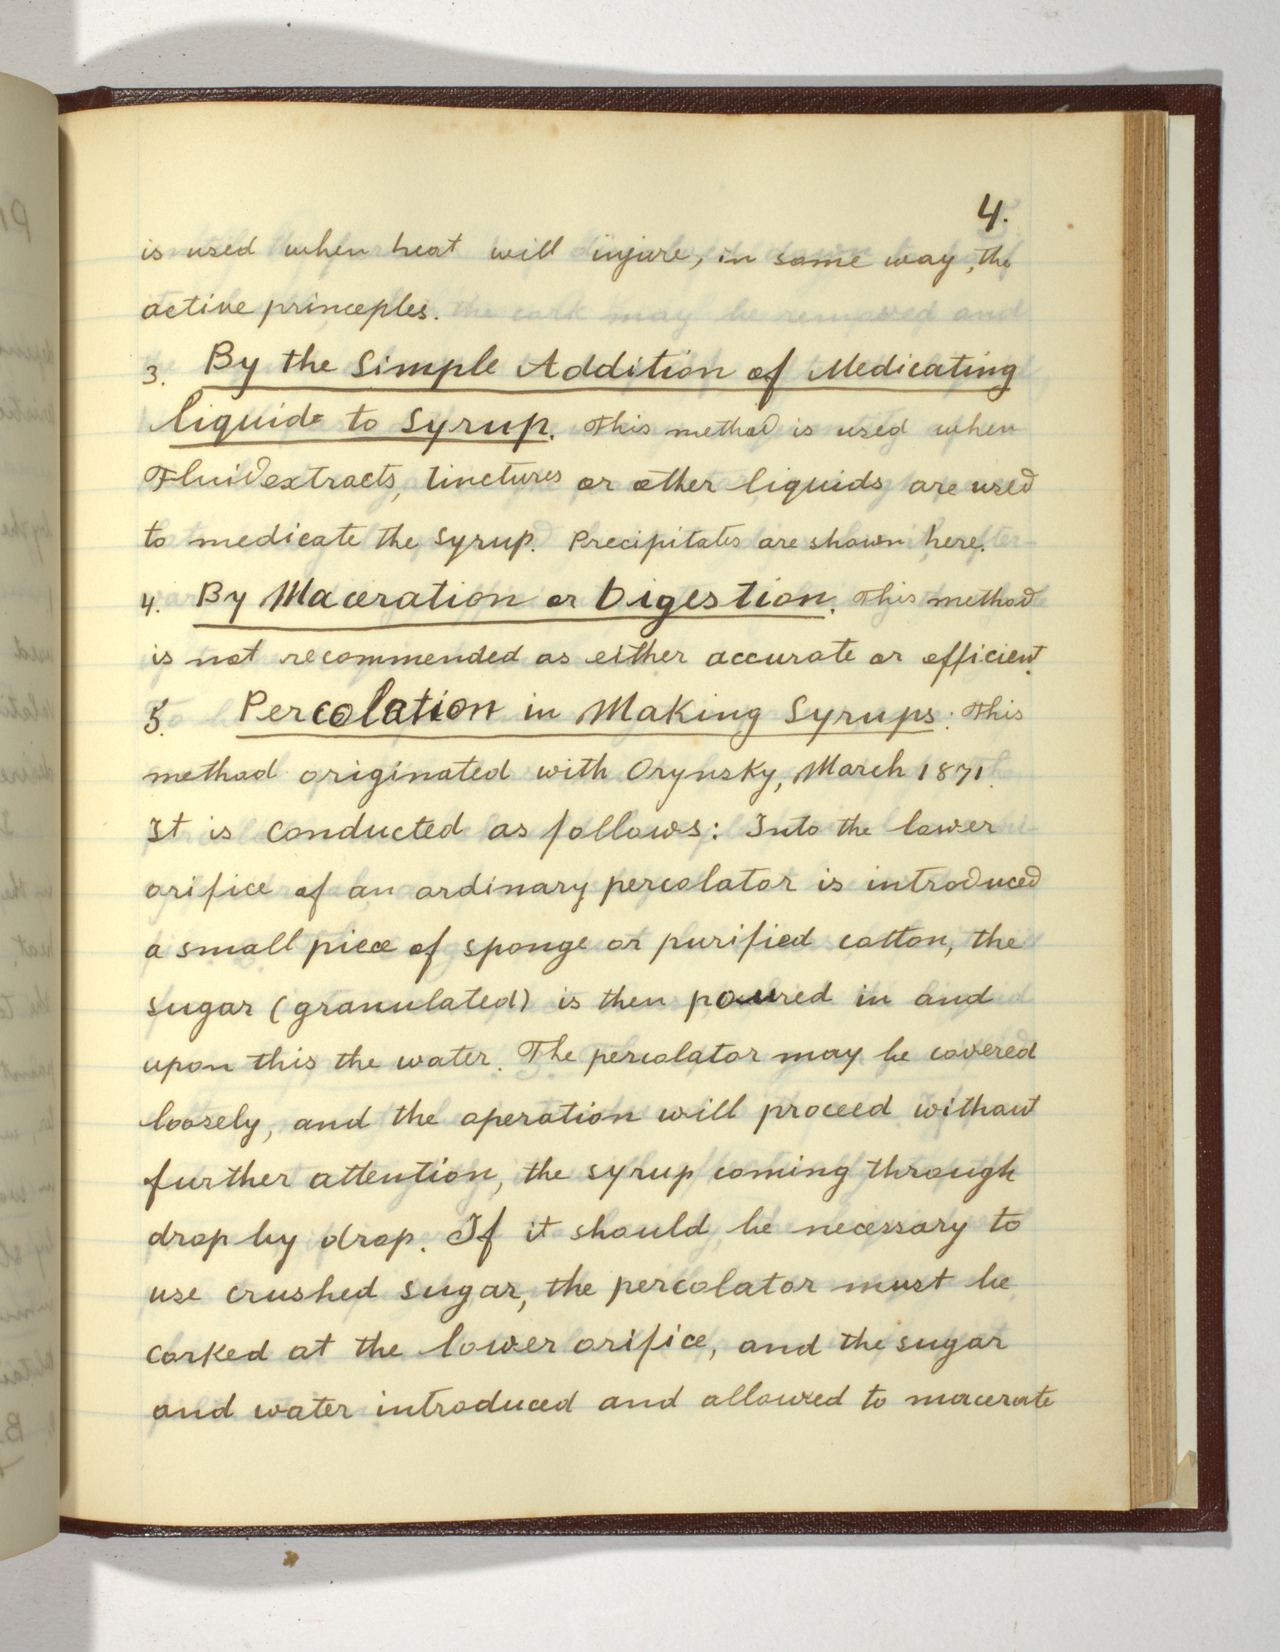 4.
is used when heat will injure, in some way, the
active princeples.
3. By the Simple Addition of Medicating
liquids to Syrup. This method is used when
Fluidextracts, tinctures or other liquids are used
to medicate the syrup. Precipitates are shown here.
4. By Maceration or Digestion. This method
is not recommended as either accurate or efficient.
5. Percolation in Making Syrups. This
method originated with Orynsky, March 1871.
It is conducted as follows: Into the lower
orifice of an ordinary percolator is introduced
a small piece of sponge or purified cotton, the
sugar (granulated) is then poured in and
upon this the water. The percolator may be covered
loosely, and the operation will proceed without
further attention, the syrup coming through
drop by drop. If it should be necessary to
use crushed sugar, the percolator must be
corked at the lower orifice, and the sugar
and water introduced and allowed to macerate